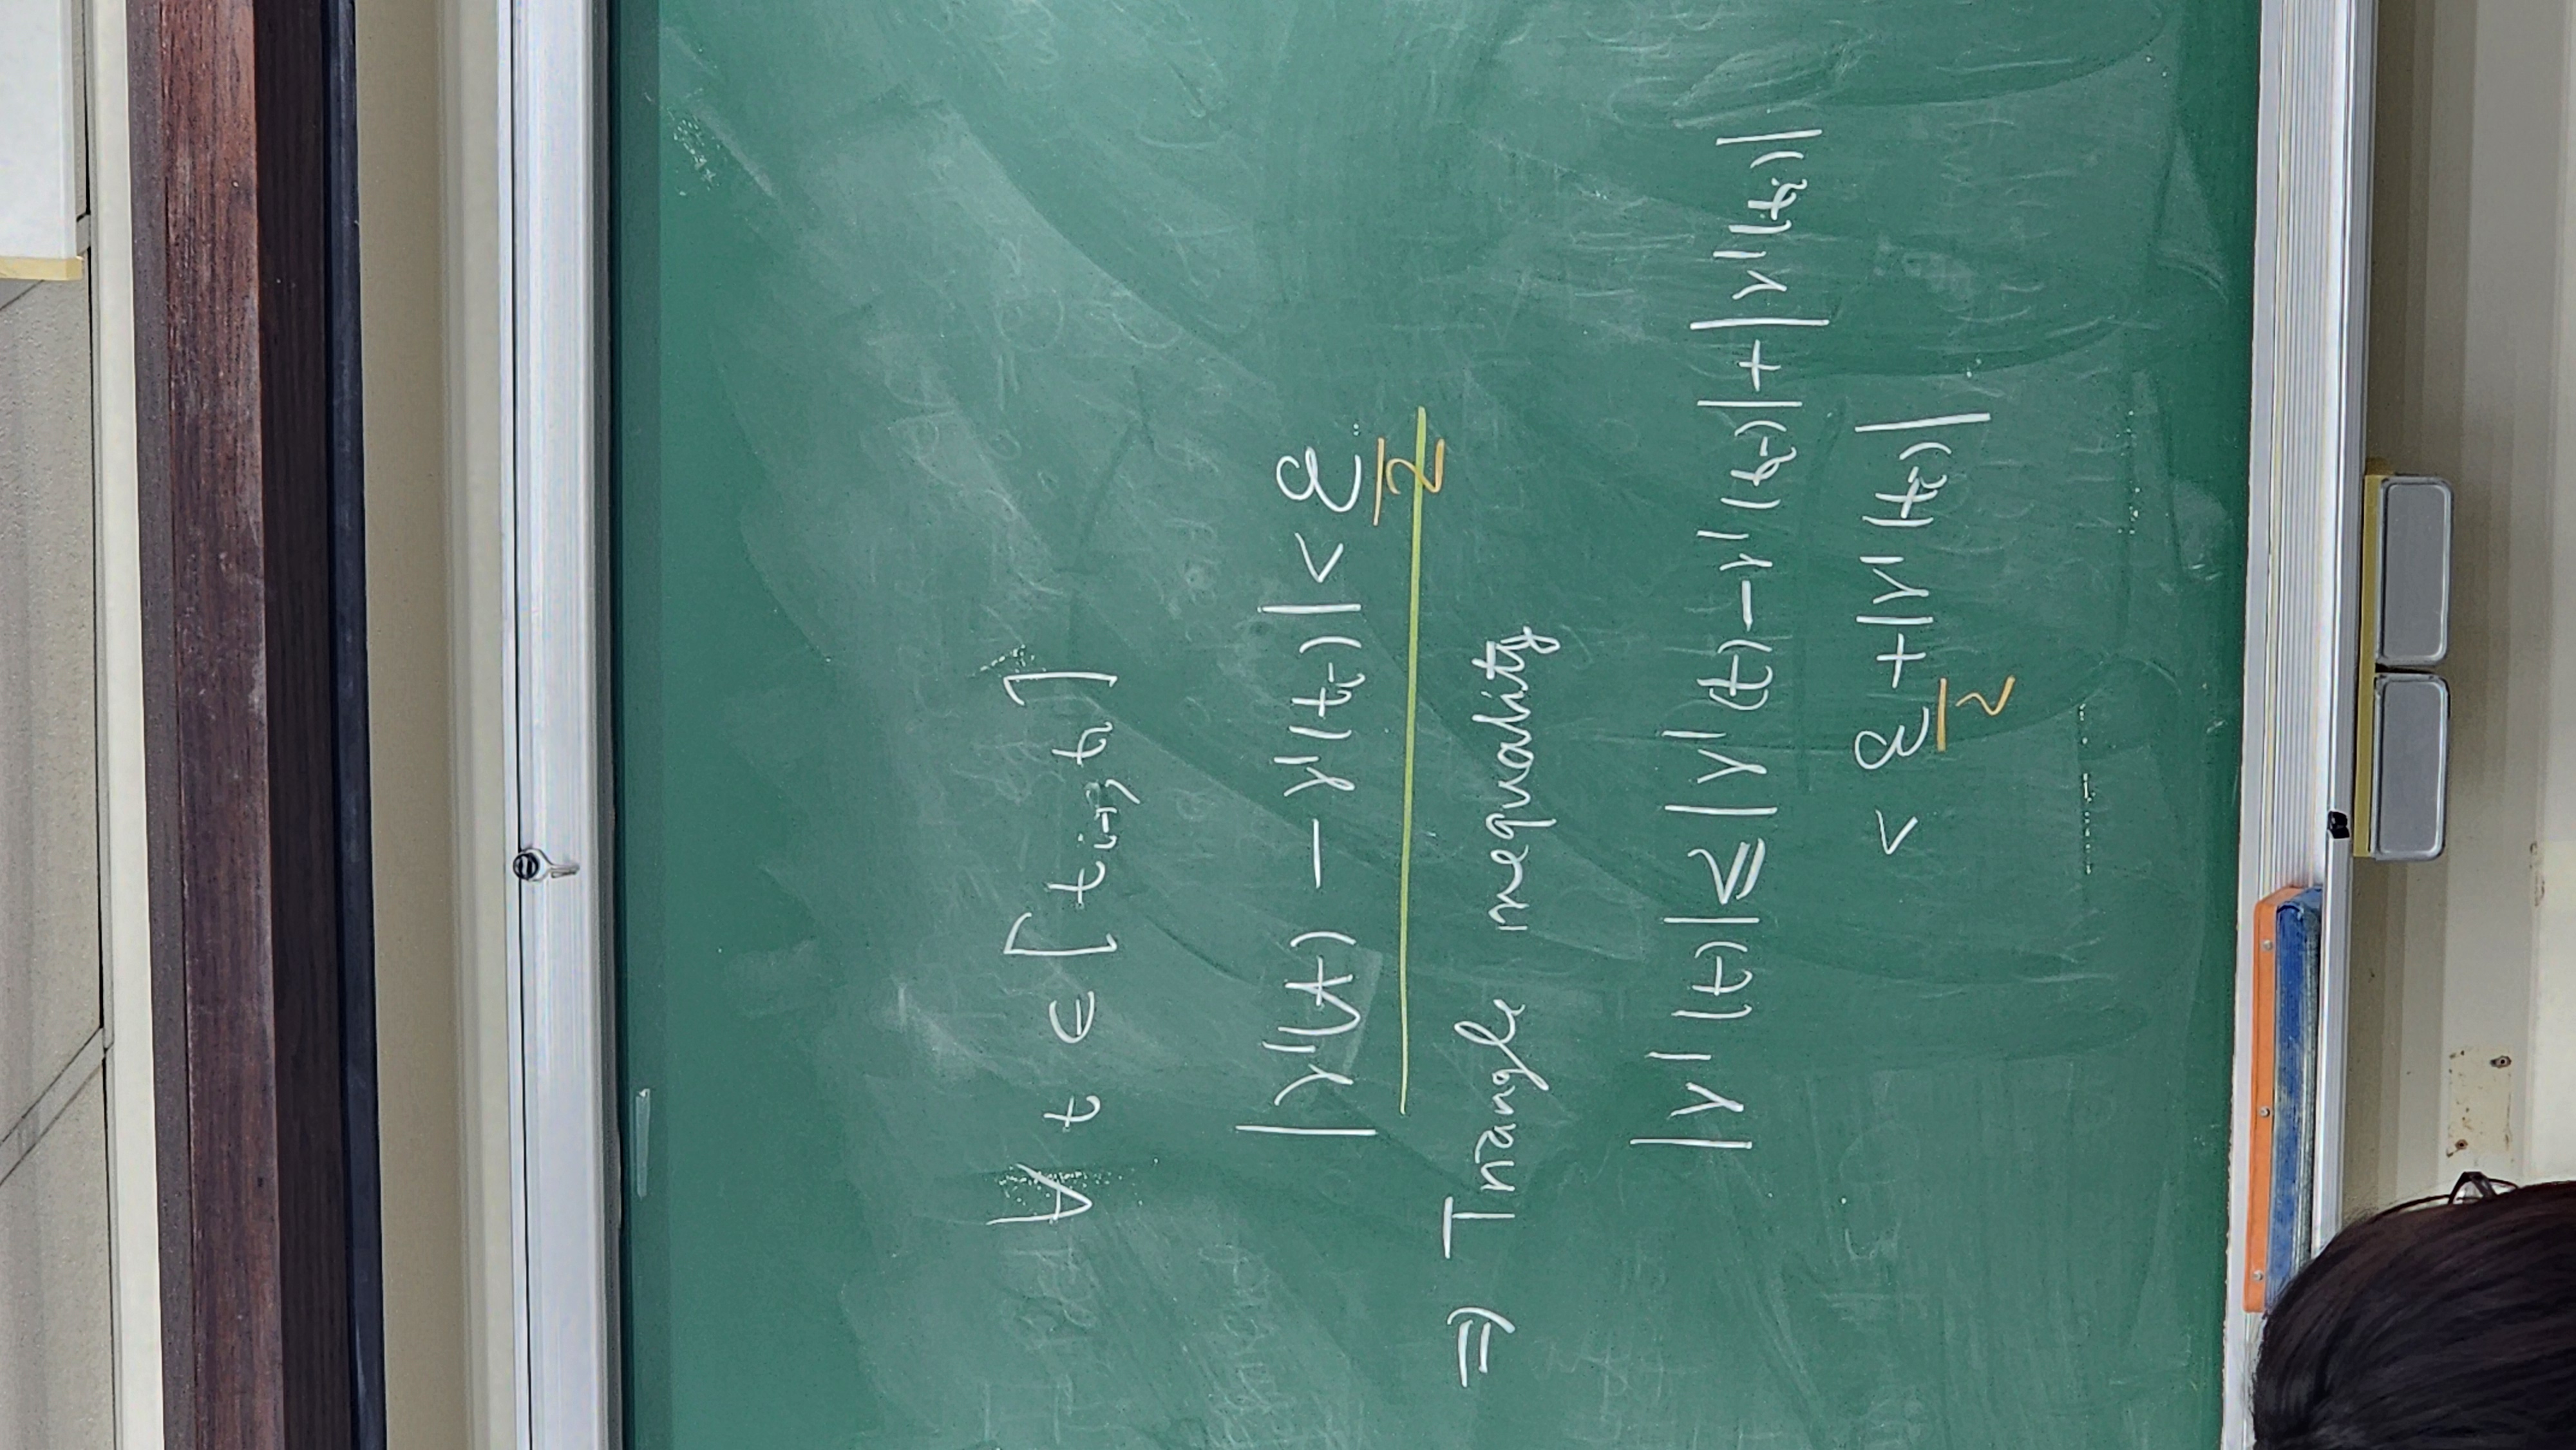 ∀ t ∈ [t_{i-1}, t_i]
|γ'(t) − γ'(t_i)| < ε/2
⇒ Triangle inequality
|γ'(t)| ≤ |γ'(t) − γ'(t_i)| + |γ'(t_i)|
< ε/2 + |γ'(t_i)|